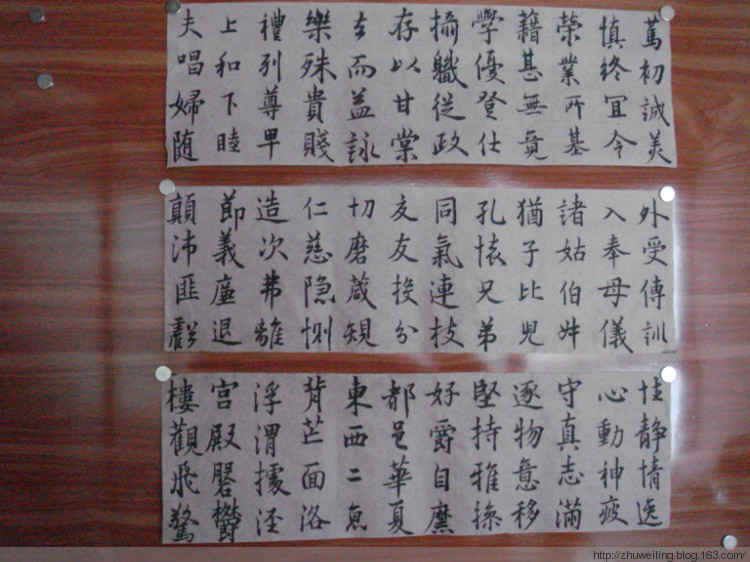 篤初誠美
慎終冝令
榮業所基
籍甚無竟
學優登仕
攝職從政
存以甘棠
去而益詠
樂殊貴賤
禮別尊卑
上和下睦
夫唱婦随
外受傅訓
入奉母儀
諸姑伯叔
猶子比兒
孔懐兄弟
同氣連枝
交友投分
切磨箴規
仁慈隐惻
造次弗離
節義廉退
顛沛匪虧
性静情逸
心動神疲
守真志滿
逐物意移
堅持雅操
好爵自縻
都邑華夏
東西二京
背芒面洛
浮渭據涇
宫殿磐鬱
樓觀飛驚
http://zhuweiling.blog.163.com/